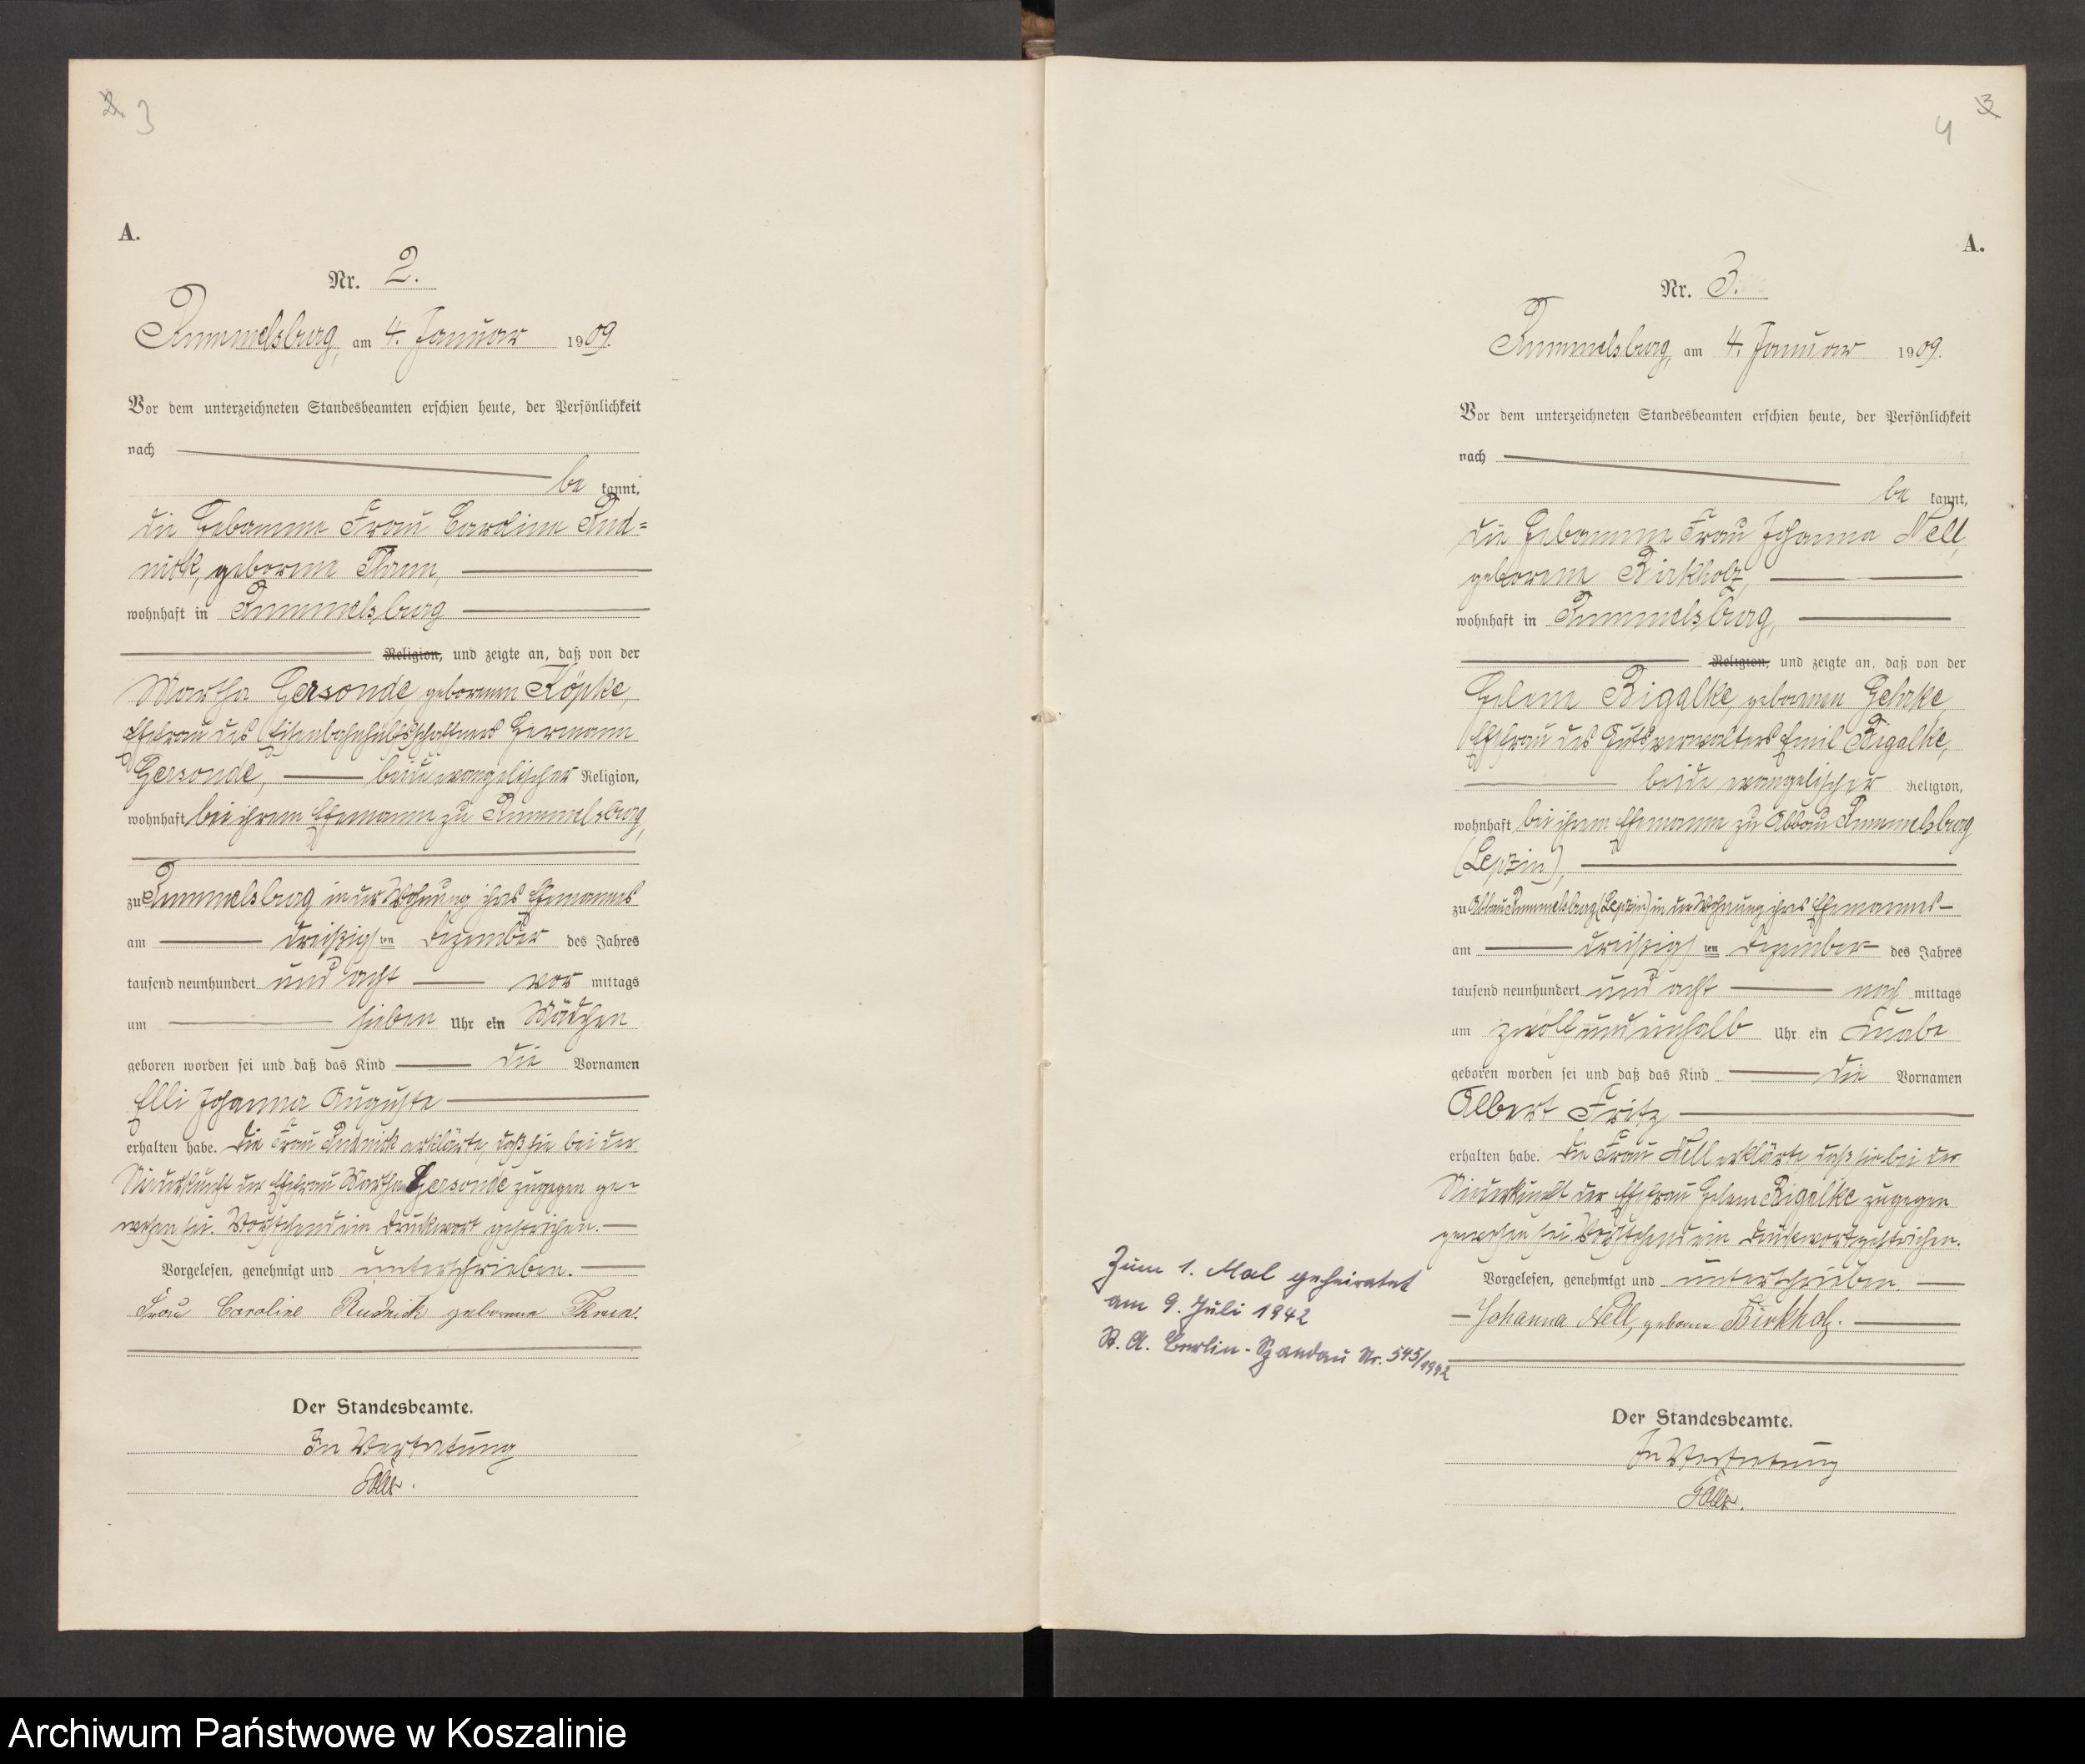 2 3
A.
Nr. 2.
Rummelsburg, am 4. Januar 1909.
Vor dem unterzeichneten Standesbeamten erschien heute, der Persönlichkeit
nach
be kannt,
die Hebamme Frau Caroline Rud=
nick, geborene Thrun,
wohnhaft in Rummelsburg
Religion, und zeigte an, daß von der
Martha Gersonde, geborenen Köpke,
Ehefrau des Eisenbahnhülfsschaffners Hermann
Gersonde, beide evangelischer Religion,
wohnhaft bei ihrem Ehemanne zu Rummelsburg,
zu Rummelsburg in der Wohnung ihres Ehemannes
am dreißigsten Dezember des Jahres
tausend neunhundert und acht vor mittags
um sieben Uhr ein Mädchen
geboren worden sei und daß das Kind die Vornamen
Elli Johanna Auguste
erhalten habe. Die Frau Rudnick erklärte, daß sie bei der
Niederkunft der Ehefrau Martha Gersonde zugegen ge-
wesen sei. Vorstehend ein Druckwort gestrichen.
Vorgelesen, genehmigt und unterschrieben.
Frau Caroline Rudnick geborene Thrun.
Der Standesbeamte.
In Vertretung
3 4
A.
Nr. 3.
Rummelsburg, am 4. Januar 1909.
Vor dem unterzeichneten Standesbeamten erschien heute, der Persönlichkeit
nach
be kannt,
die Hebamme Frau Johanna Nell,
geborene Birkholz,
wohnhaft in Rummelsburg,
Religion, und zeigte an, daß von der
Helene Bigalke, geborenen Gehrke,
Ehefrau des Gutsverwalters Emil Bigalke,
beide evangelischer Religion,
wohnhaft bei ihrem Ehemanne zu Abbau Rummelsburg
(Lepzin),
zu Abbau Rummelsburg (Lepzin) in der Wohnung ihres Ehemannes
am dreißigsten Dezember des Jahres
tausend neunhundert und acht nach mittags
um zwölf und einhalb Uhr ein Knabe
geboren worden sei und daß das Kind die Vornamen
Albert Fritz
erhalten habe. Die Frau Nell erklärte, daß sie bei der
Niederkunft der Ehefrau Helene Bigalke zugegen
gewesen sei. Vorstehend ein Druckwort gestrichen.
Vorgelesen, genehmigt und unterschrieben.
Johanna Nell, geborne Birkholz.
Der Standesbeamte.
In Vertretung
Zum 1. Mal geheiratet
am 9. Juli 1942
St. A. Berlin-Spandau Nr. 545/1942
Archiwum Państwowe w Koszalinie